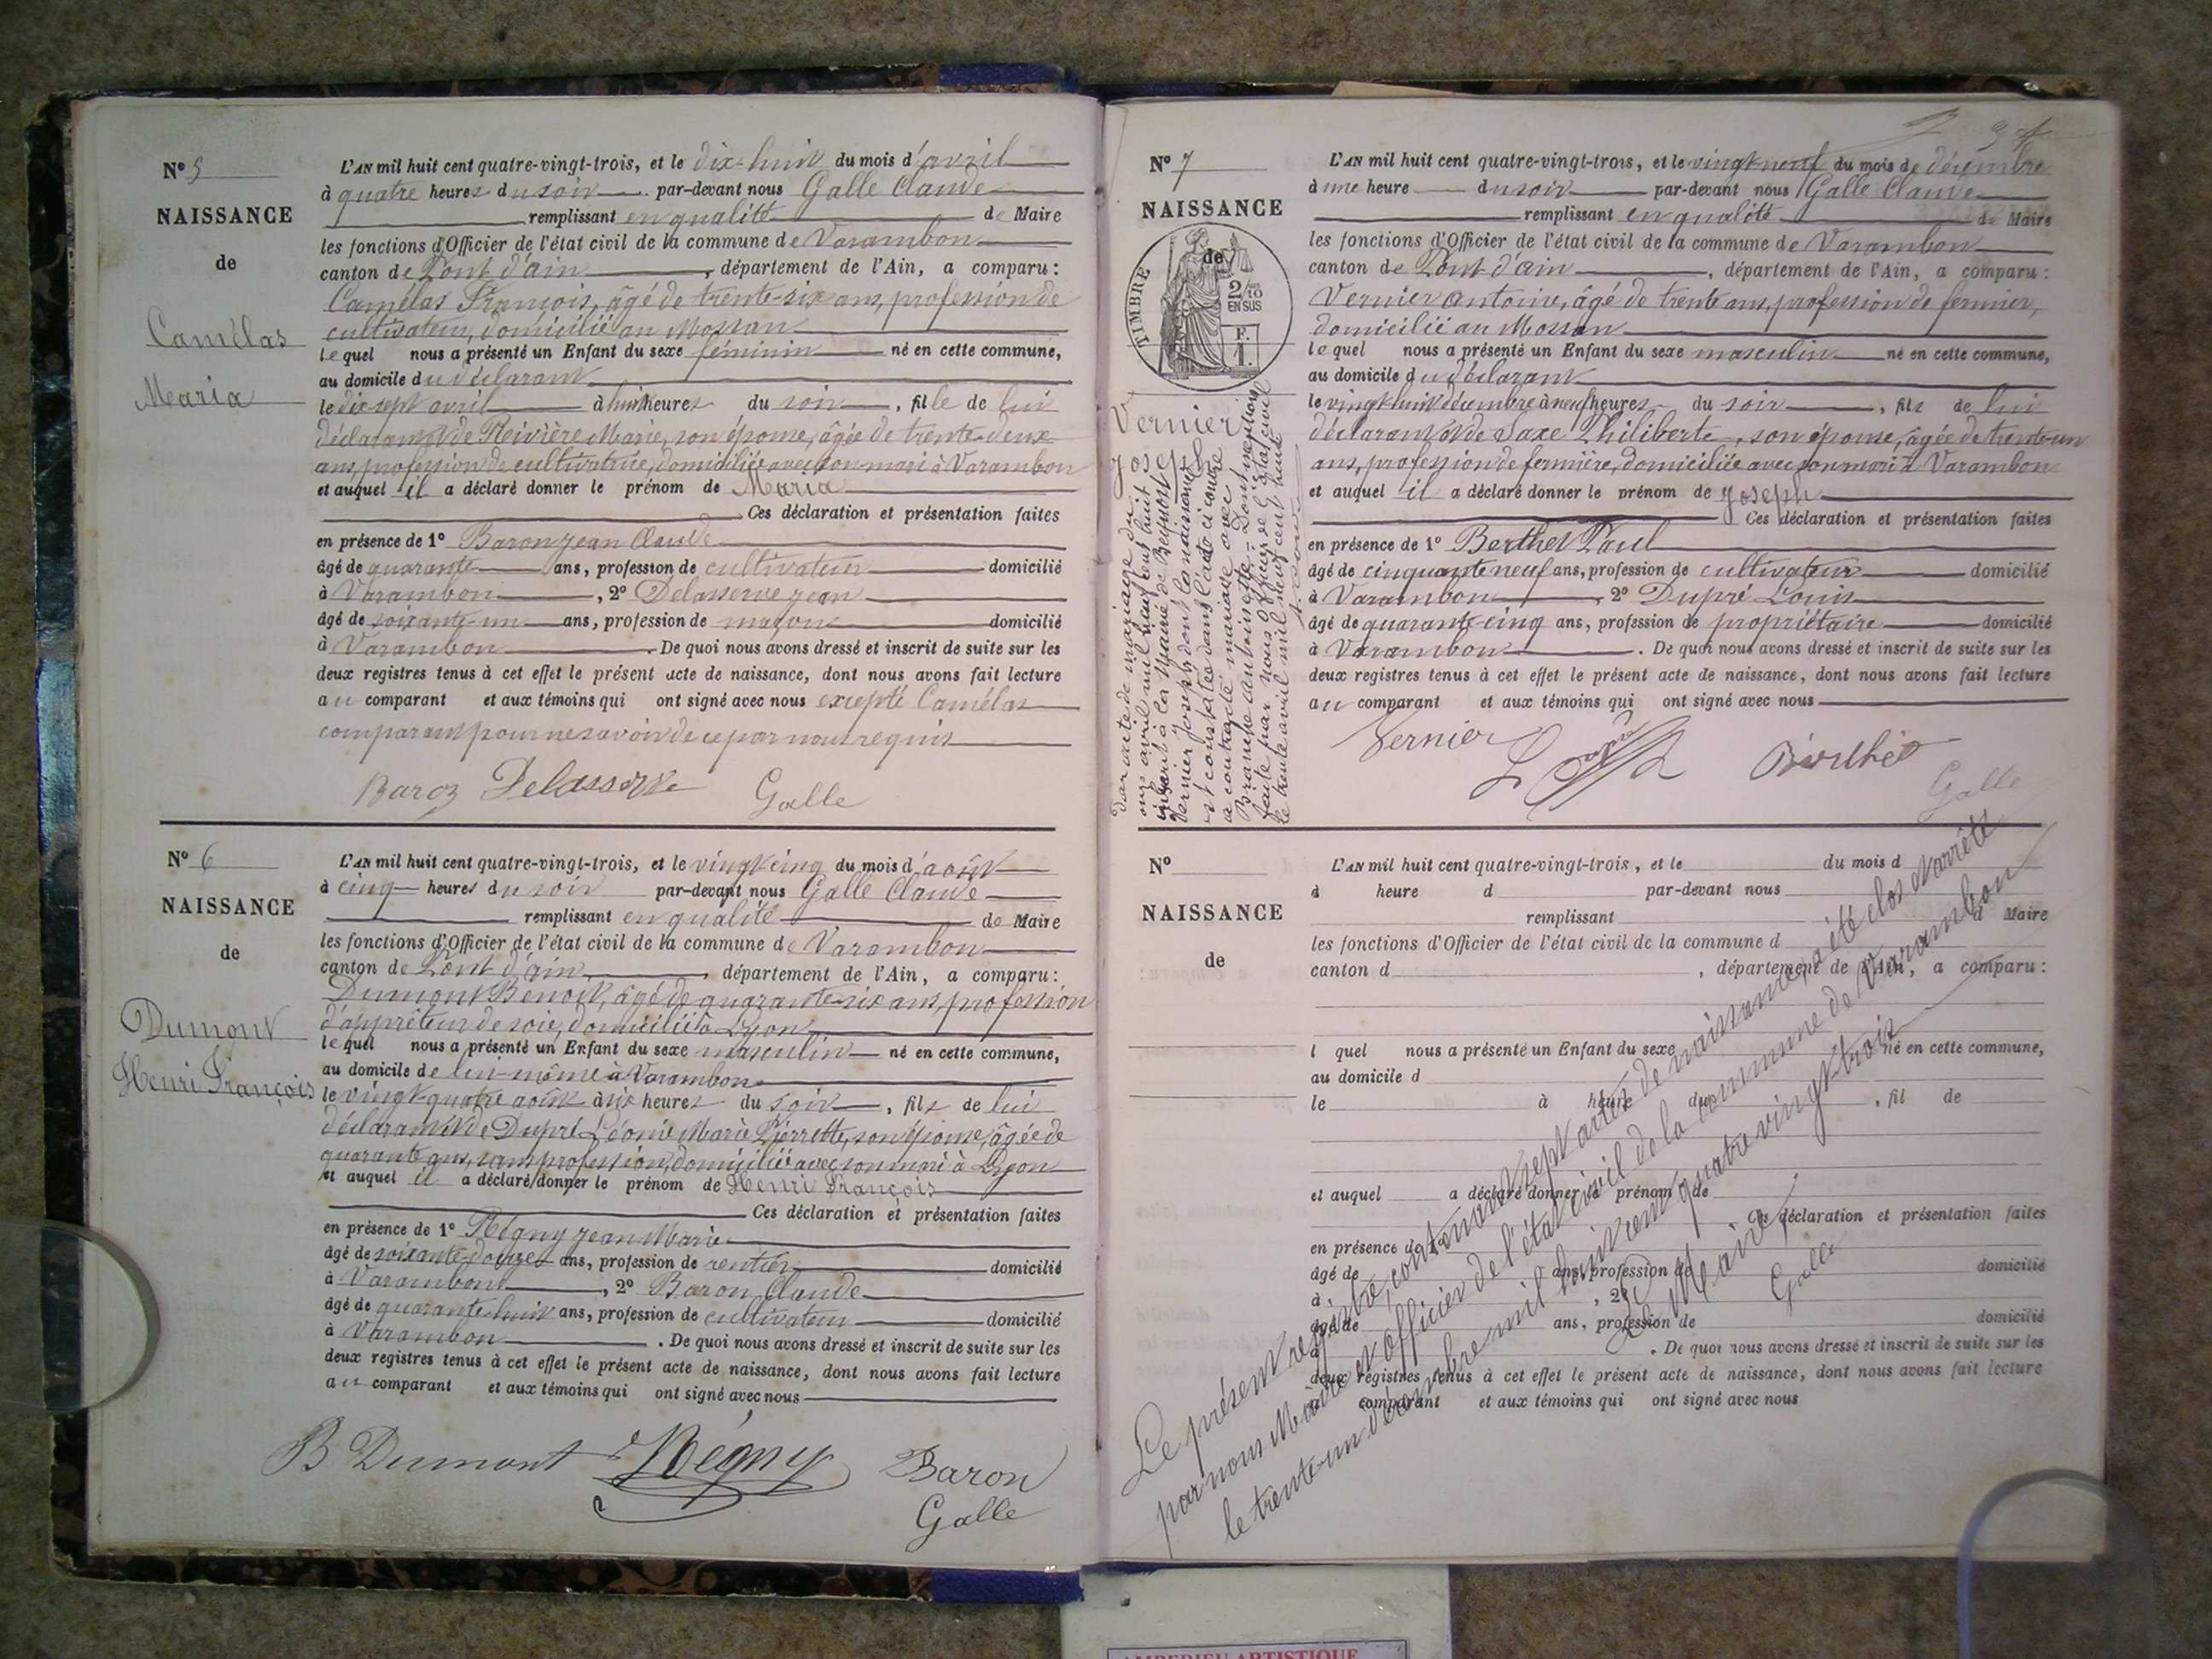 Nº 5
NAISSANCE
de
Camélas
Maria
L'AN mil huit cent quatre-vingt-trois, et le dix-huit du mois d'avril
à quatre heures du soir par-devant nous Galle Claude
remplissant en qualité de Maire
les fonctions d'Officier de l'état civil de la commune de Varambon
canton de Pont d'ain, département de l'Ain, a comparu :
Camélas François, âgé de trente-six ans, profession de
cultivateur, domicilié au Mossan
lequel nous a présenté un Enfant du sexe féminin né en cette commune,
au domicile du déclarant
le dix sept avril à huit heures du soir, fille de lui
déclarant et de Rivière Marie, son épouse, âgée de trente-deux
ans, profession de cultivatrice, domiciliée avec son mari à Varambon
et auquel il a déclaré donner le prénom de Maria
Ces déclaration et présentation faites
en présence de 1º Baron Jean Claude
âgé de quarante ans, profession de cultivateur domicilié
à Varambon, 2º Delasserve Jean
âgé de soixante-un ans, profession de maçon domicilié
à Varambon. De quoi nous avons dressé et inscrit de suite sur les
deux registres tenus à cet effet le présent acte de naissance, dont nous avons fait lecture
au comparant et aux témoins qui ont signé avec nous excepté Camélas
comparant pour ne savoir de ce par nous requis
Baron Delasserve Galle
Nº 6
NAISSANCE
de
Dumont
Henri François
L'AN mil huit cent quatre-vingt-trois, et le vingt cinq du mois d'août
à cinq heures du soir par-devant nous Galle Claude
remplissant en qualité de Maire
les fonctions d'Officier de l'état civil de la commune de Varambon
canton de Pont d'ain, département de l'Ain, a comparu :
Dumont Benoit, âgé de quarante-six ans, profession
d'apprêteur de soie, domicilié à Lyon
lequel nous a présenté un Enfant du sexe masculin né en cette commune,
au domicile de lui-même à Varambon
le vingt-quatre août à six heures du soir, fils de lui
déclarant et de Dupré Léonie Marie Pierrette, son épouse, âgée de
quarante ans, sans profession, domiciliée avec son mari à Lyon
et auquel il a déclaré donner le prénom de Henri François
Ces déclaration et présentation faites
en présence de 1º Régny Jean Marie
âgé de soixante-douze ans, profession de rentier domicilié
à Varambon, 2º Baron Claude
âgé de quarante-huit ans, profession de cultivateur domicilié
à Varambon. De quoi nous avons dressé et inscrit de suite sur les
deux registres tenus à cet effet le présent acte de naissance, dont nous avons fait lecture
au comparant et aux témoins qui ont signé avec nous
B Dumont Régny Baron
Galle
Nº 7
NAISSANCE
de
TIMBRE
2/10
EN SUS
F.
1.
Vernier
Par acte de mariage du
onze avril mil neuf cent huit
inscrit à la Mairie de
Vernier Joseph dont la naissance
est constatée dans l'acte ci contre
a contracté mariage avec
Antoinette - Dont mention
faite par nous Officier de l'état civil
le trente avril mil neuf cent huit
L'AN mil huit cent quatre-vingt-trois, et le vingt-neuf du mois de décembre
à une heure du soir par-devant nous Galle Claude
remplissant en qualité de Maire
les fonctions d'Officier de l'état civil de la commune de Varambon
canton de Pont d'ain, département de l'Ain, a comparu :
Vernier Antoine, âgé de trente ans, profession de fermier,
domicilié au Mossan
lequel nous a présenté un Enfant du sexe masculin né en cette commune,
au domicile du déclarant
le vingt-huit décembre à neuf heures du soir, fils de lui
déclarant et de Saxe Philiberte, son épouse, âgée de trente-un
ans, profession de fermière, domiciliée avec son mari à Varambon
et auquel il a déclaré donner le prénom de Joseph
Ces déclaration et présentation faites
en présence de 1º Berthet Paul
âgé de cinquante neuf ans, profession de cultivateur domicilié
à Varambon, 2º Dupré Louis
âgé de quarante-cinq ans, profession de propriétaire domicilié
à Varambon. De quoi nous avons dressé et inscrit de suite sur les
deux registres tenus à cet effet le présent acte de naissance, dont nous avons fait lecture
au comparant et aux témoins qui ont signé avec nous
Vernier L Dupré Berthet
Galle
Nº
NAISSANCE
de
L'AN mil huit cent quatre-vingt-trois, et le du mois d
à heure d par-devant nous
remplissant d Maire
les fonctions d'Officier de l'état civil de la commune d
canton d, département de l'Ain, a comparu :
l quel nous a présenté un Enfant du sexe né en cette commune,
au domicile d
le à heure du, fil de
et auquel a déclaré donner le prénom de
Ces déclaration et présentation faites
en présence de 1º
âgé de ans, profession de domicilié
à, 2º
âgé de ans, profession de domicilié
à. De quoi nous avons dressé et inscrit de suite sur les
deux registres tenus à cet effet le présent acte de naissance, dont nous avons fait lecture
a comparant et aux témoins qui ont signé avec nous
Le présent registre, contenant sept actes de naissance, a été clos et arrêté
par nous Maire et officier de l'état civil de la commune de Varambon
le trente-un décembre mil huit cent quatre vingt trois
Le Maire,
Galle
AMBERIEU ARTISTIQUE